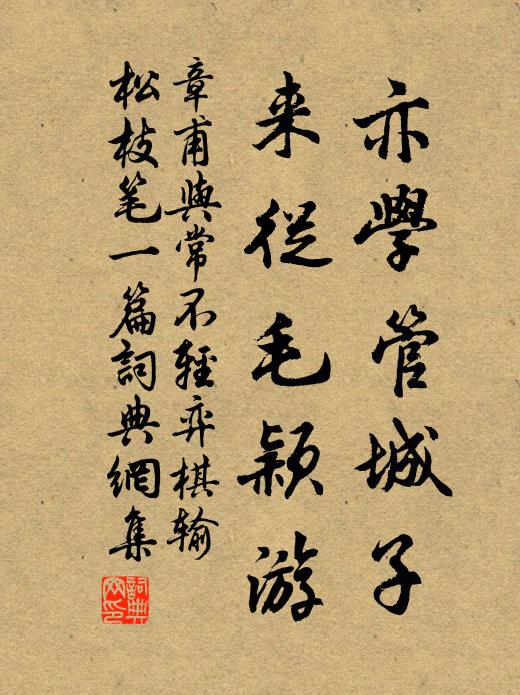 亦學管城子
来從毛穎游
章甫與常不輕弈棋输
松枝笔一篇詞典網集
詞典网印